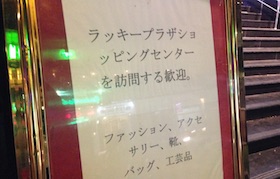 ラッキープラザショ
ッピングセンター
を訪問する歓迎。
ファッション、アクセ
サリー、靴、
バッグ、工芸品